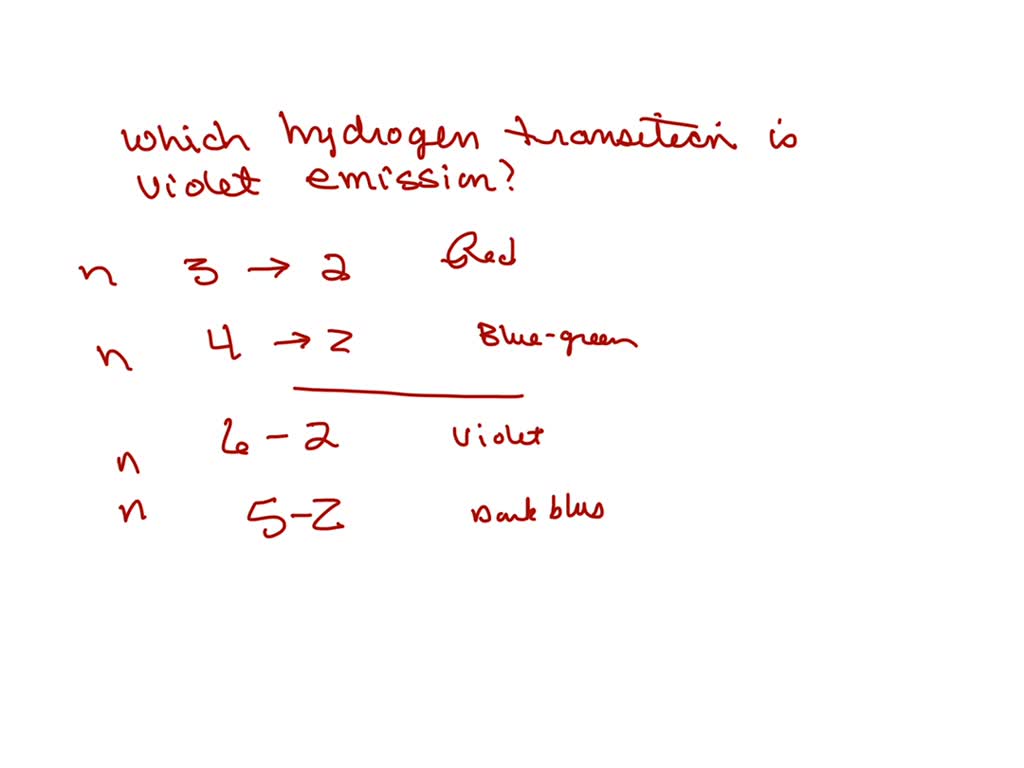 which hydrogen transition is
violet emission?
n 3 → 2 Red
n 4 → 2 Blue-green
n 6 - 2 violet
n 5-2 Dark blue